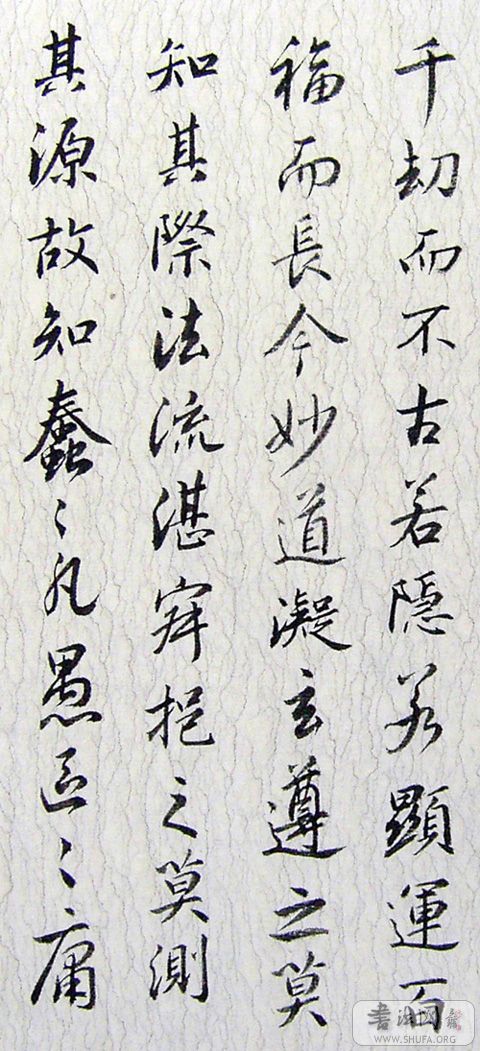 千劫而不古若隱若顯運百
福而長今妙道凝玄遵之莫
知其際法流湛寂挹之莫測
其源故知蠢〻凡愚區〻庸
書法网
WWW.SHUFA.ORG